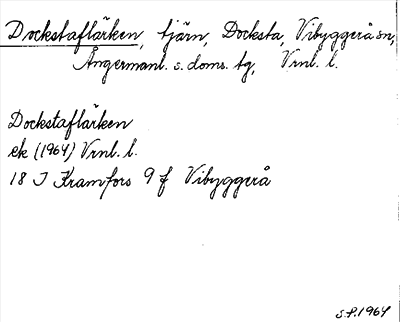 Dockstaflärken, tjärn, Docksta, Vibyggerå sn,
Ångermanl. s. doms. tg, Vrnl. l.
Dockstaflärken
ek (1964) Vrnl. l.
18 J Kramfors 9 f Vibyggerå
S.P. 1964